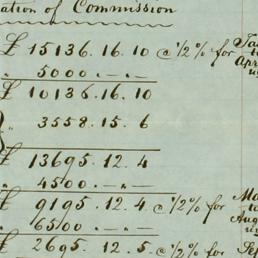 ation of Commission
£ 15136.16.10 @ 1/2% for
" 5000.–.–
£ 10136.16.10
" 3558.15.6
£ 13695.12.4
" 4500.–.–
£ 9195.12.4 @ 1/2% for
" 6500.–.–
£ 2695.12.5 @ 1/2% for